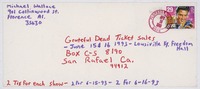 Michael Wallace
901 Collinwood St.
Florence Al.
35630
Grateful Dead Ticket Sales
- June 15 & 16 1993 - Louisville Ky, Freedom Hall
Box C-S 8190
San Rafael Ca.
94912
2 Tix for each show - 2 for 6-15-93 - 2 for 6-16-93
29